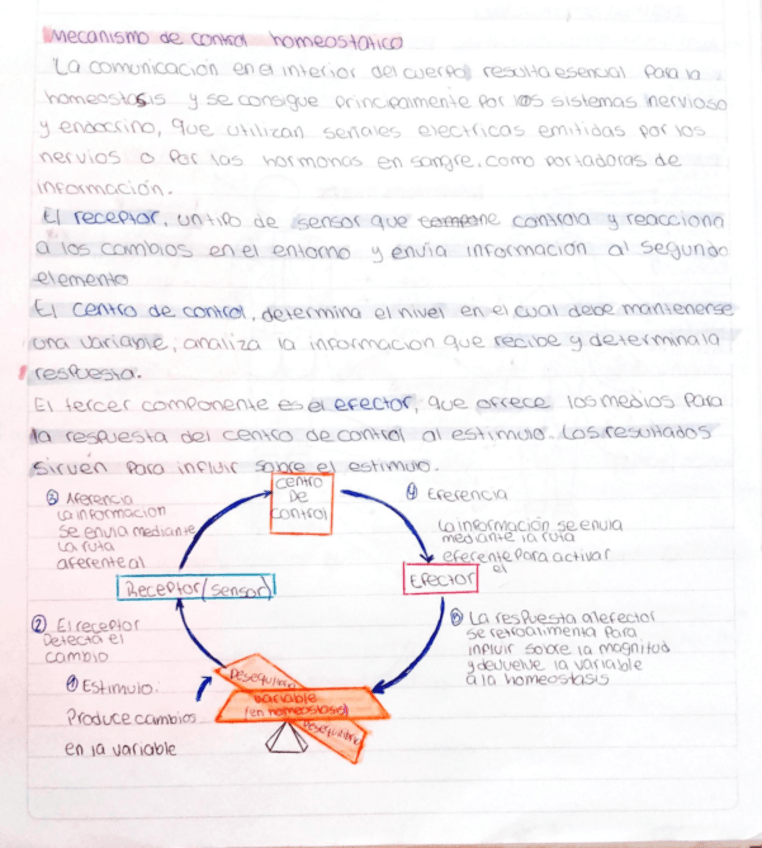 Mecanismo de control homeostatico
La comunicación en el interior del cuerpo resulta esencial para la
homeostasis y se consigue principalmente por los sistemas nervioso
y endocrino, que utilizan señales electricas emitidas por los
nervios o por las hormonas en sangre, como portadoras de
información.
El receptor, un tipo de sensor que compone controla y reacciona
a los cambios en el entorno y envia información al segundo
elemento
El centro de control, determina el nivel en el cual debe mantenerse
una variable, analiza la informacion que recibe y determina la
respuesta.
El tercer componente es el efector, que ofrece los medios para
la respuesta del centro de control al estimulo. Los resultados
sirven para influir sobre el estimulo.
Centro
De
Control
③ Aferencia
La informacion
se envia mediante
La ruta
aferente al
④ Eferencia
La información se envia
mediante la ruta
eferente para activar
el
Receptor (sensor)
Efector
② El receptor
Detecta el
cambio
⑤ La respuesta al efector
se retroalimenta para
influir sobre la magnitud
y devuelve la variable
a la homeostasis
① Estimulo:
Produce cambios
en la variable
Desequilibrio
variable
(en homeostasis)
Desequilibrio